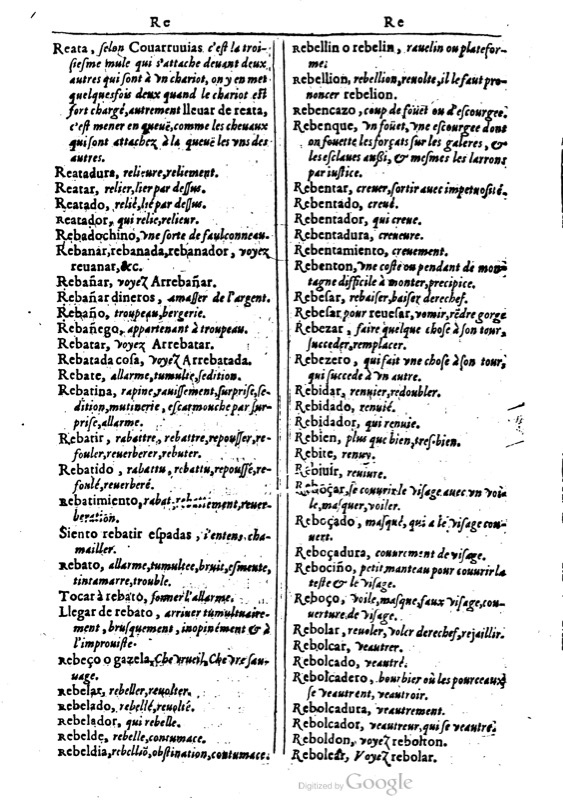 Re
Reata, selon Couarruuias c'est la troi-
siesme mule qui s'attache deuant deux
autres qui sont à vn chariot, on y en met
quelquesfois deux quand le chariot est
fort chargé, autrement lleuar de reata,
c'est mener en queuë, comme les cheuaux
qui sont attachez à la queuë les vns des
autres.
Reatadura, relieure, reliement.
Reatar, relier, lier par dessus.
Reatado, relié, lié par dessus.
Reatador, qui relie, relieur.
Rebadochino, vne sorte de faulconneau.
Rebanar, rebanada, rebanador, voyez
reuanar, &c.
Rebañar, voyez Arrebañar.
Rebañar dineros, amasser de l'argent.
Rebaño, troupeau, bergerie.
Rebañego, appartenant à troupeau.
Rebatar, voyez Arrebatar.
Rebatada cosa, voyez Arrebatada.
Rebate, allarme, tumulte, sedition.
Rebatina, rapine, rauissement, surprise, se-
dition, mutinerie, escarmouche par sur-
prise, allarme.
Rebatir, rabattre, rebattre, repousser, re-
fouler, reuerberer, rebuter.
Rebatido, rabattu, rebattu, repoussé, re-
foulé, reuerberé.
Rebatimiento, rabat, reuer-
beration.
Siento rebatir espadas, i'entens cha-
mailler.
Rebato, allarme, tumultee, bruit, esmeute,
tintamarre, trouble.
Tocar à rebato, sonner l'allarme.
Llegar de rebato, arriuer tumultuaire-
ment, brusquement, inopinément & à
l'improuiste.
Rebeço o gazela, Cheureuil, Cheure sau-
uage.
Rebelar, rebeller, reuolter.
Rebelado, rebellé, reuolté.
Rebelador, qui rebelle.
Rebelde, rebelle, contumace.
Rebeldia, rebelliõ, obstination, contumace.
Re
Rebellin o rebelin, rauelin ou platefor-
me.
Rebellion, rebellion, reuolte, il le faut pro-
noncer rebelion.
Rebencazo, coup de foüet ou d'escourgee.
Rebenque, vn foüet, vne escourgee dont
on fouette les forçats sur les galeres, &
les esclaues aussi, & mesmes les larrons
par iustice.
Rebentar, creuer, sortir auec impetuosité.
Rebentado, creué.
Rebentador, qui creue.
Rebentadura, creueure.
Rebentamiento, creuement.
Rebenton, vne coste ou pendant de mon-
tagne difficile à monter, precipice.
Rebesar, rebaiser, baiser derechef.
Rebesar pour reuesar, vomir, rẽdre gorge
Rebezar, faire quelque chose à son tour,
succeder, remplacer.
Rebezero, qui fait vne chose à son tour,
qui succede à vn autre.
Rebidar, renuier, redoubler.
Rebidado, renuié.
Rebidador, qui renuie.
Rebien, plus que bien, tres-bien.
Rebite, renuy.
Rebiuir, reuiure.
Reboçar, se couurir le visage auec vn voi-
le, masquer, voiler.
Reboçado, masqué, qui a le visage cou-
uert.
Reboçadura, couurement de visage.
Rebociño, petit manteau pour couurir la
teste & le visage.
Reboço, voile, masque, faux visage, cou-
uerture de visage.
Rebolar, reuoler, voler derechef, rejaillir.
Rebolcar, veautrer.
Rebolcado, veautré.
Rebolcadero, bourbier où les pourceaux
se veautrent, veautroir.
Rebolcadura, veautrement.
Rebolcador, veautreur, qui se veautre.
Reboldon, voyez rebolton.
Rebolear, Voyez rebolar.
Digitized by Google